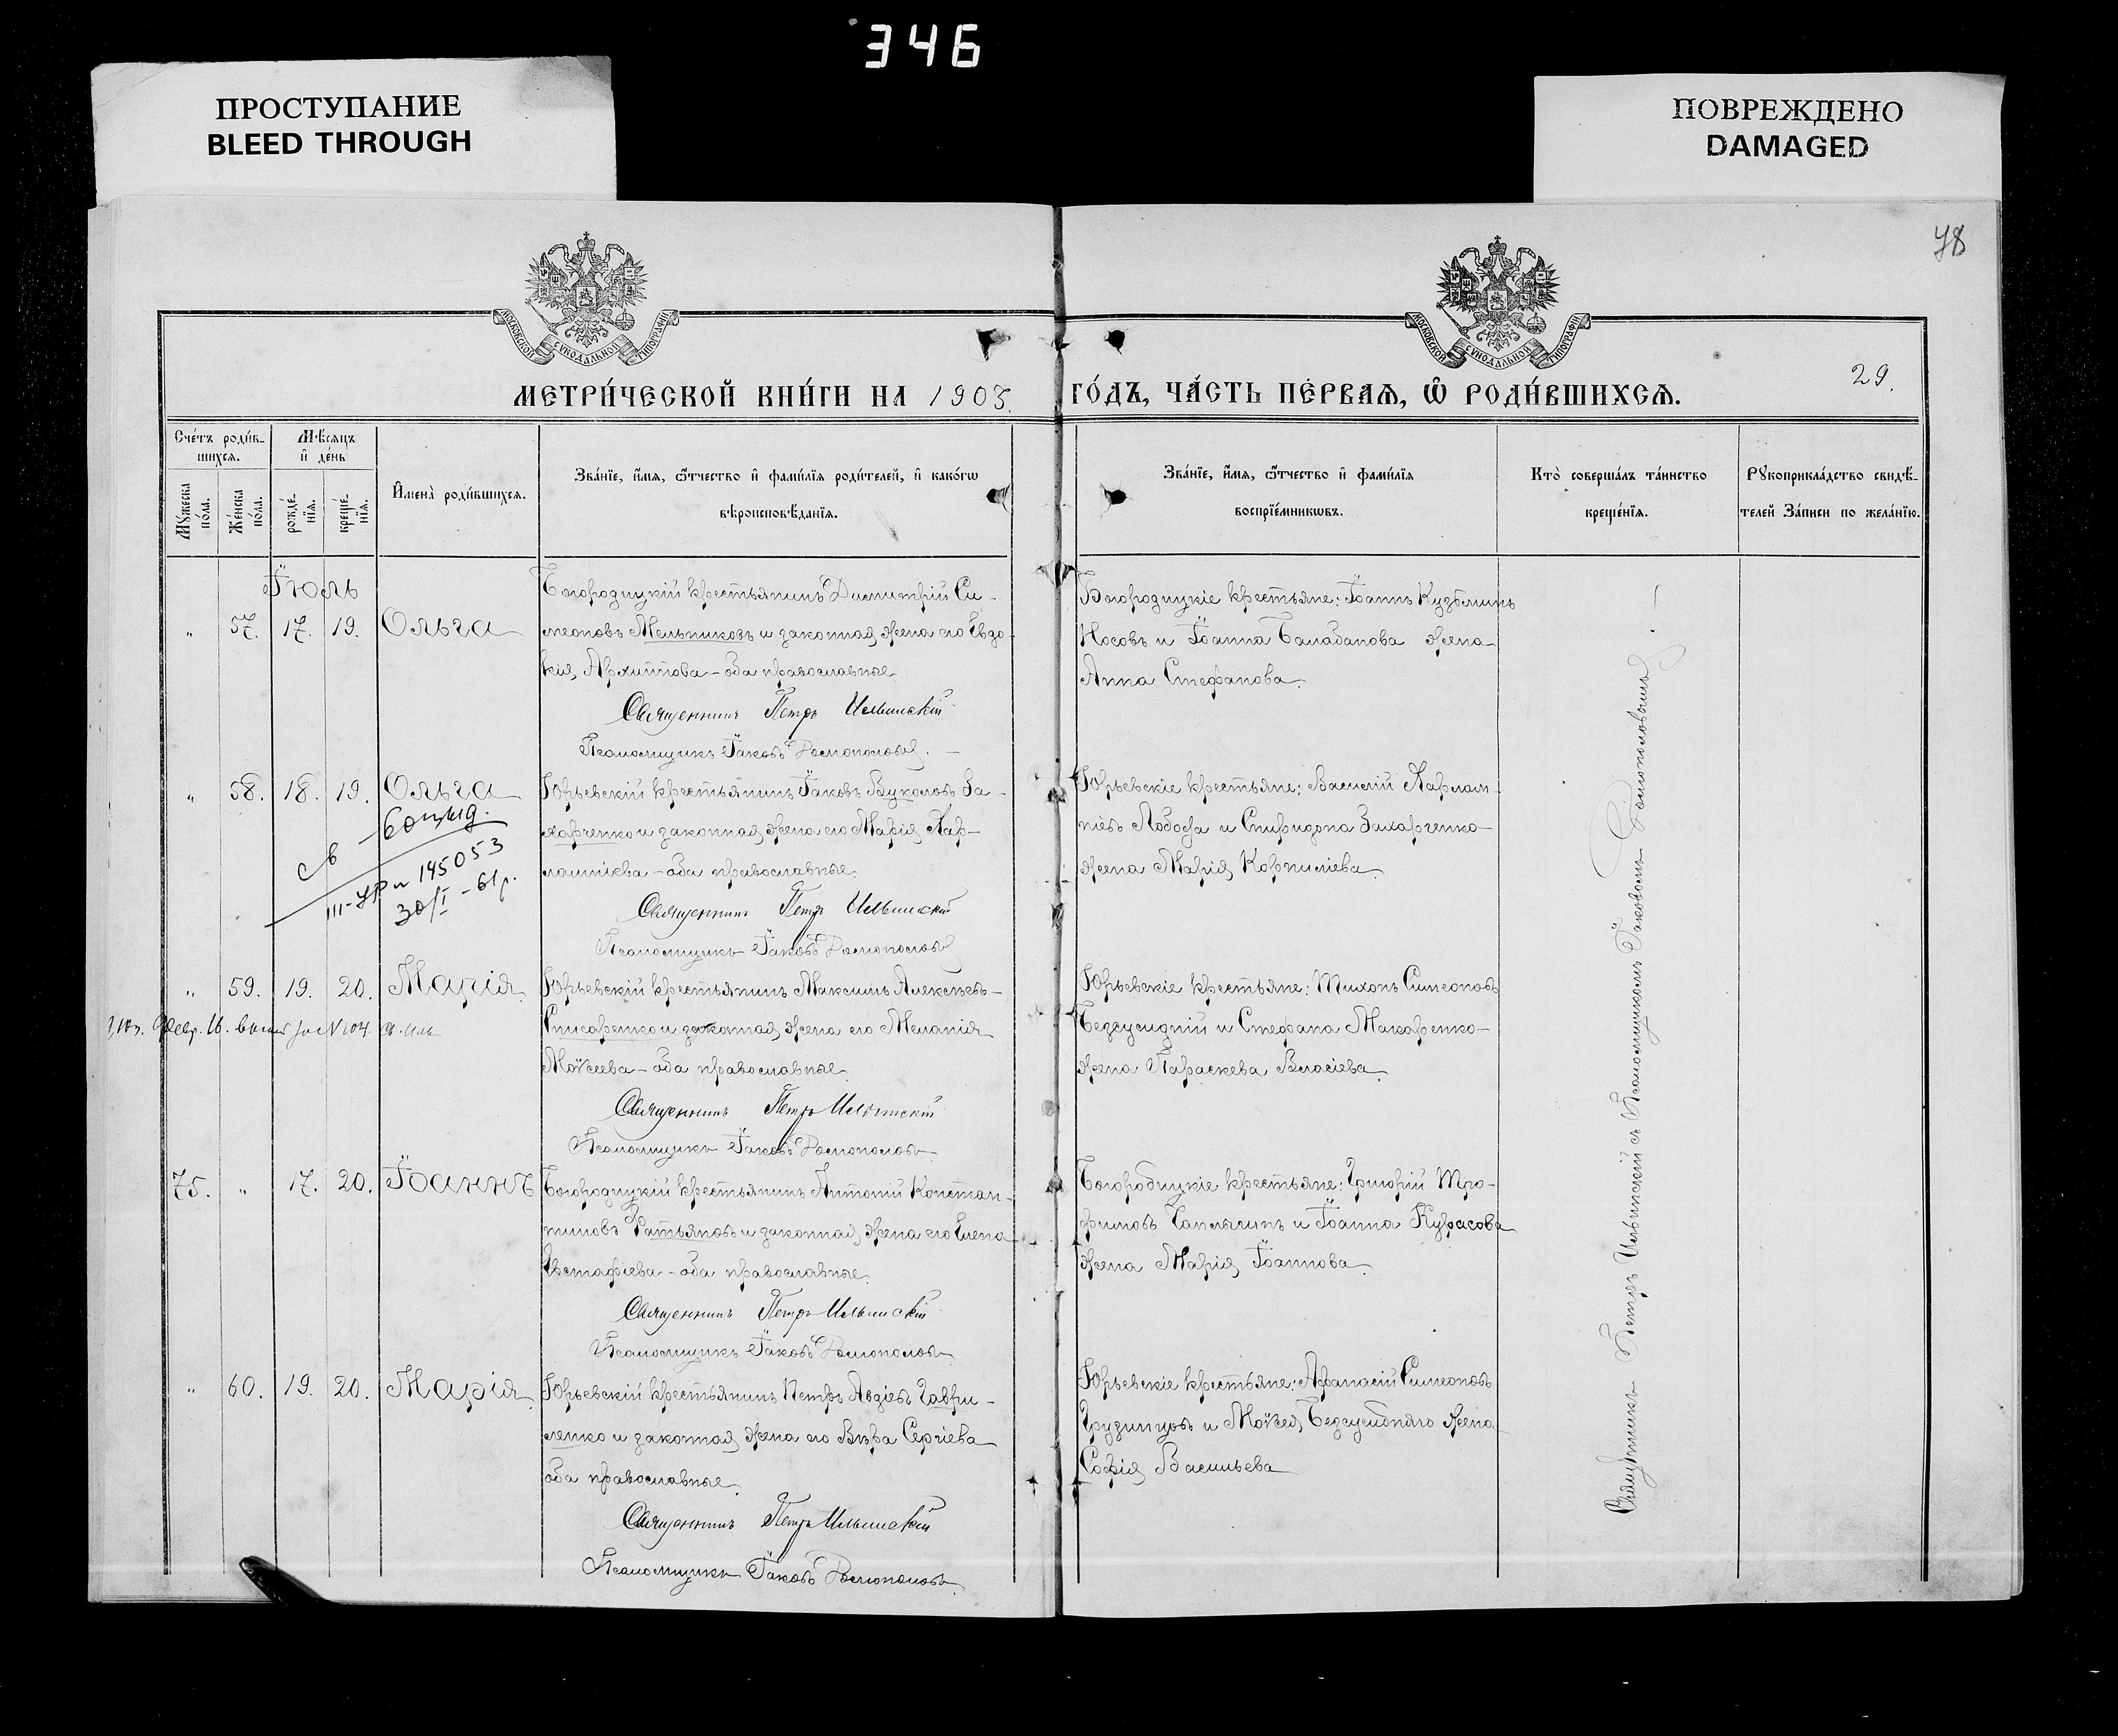 346
ПРОСТУПАНИЕ
BLEED THROUGH
ПОВРЕЖДЕНО
DAMAGED
78
МОСКОВСКОЙ СѴНОДАЛЬНОЙ ТИПОГРАФІИ
МОСКОВСКОЙ СѴНОДАЛЬНОЙ ТИПОГРАФІИ
29.
МЕТРИ́ЧЕСКОЙ КНИ́ГИ НА 1903. ГО́ДЪ, ЧА́СТЬ ПЕ́РВАѦ, Ѽ РОДИ́ВШИХСѦ.
Сче́тъ роди́в-
шихсѧ.
Мѣ́сѧцъ
и҆ де́нь
Мꙋ́жеска по́ла.
Же́нска по́ла.
рожде́-нїѧ.
креще́-нїѧ.
И҆мена̀ роди́вшихсѧ.
Зва́нїе, и҆́мѧ, ѻ҆́тчество и҆ фами́лїѧ роди́телей, и҆ како́гѡ
вѣроисповѣ́данїѧ.
Зва́нїе, и҆́мѧ, ѻ҆́тчество и҆ фами́лїѧ
воспрїе́мникѡвъ.
Кто̀ соверша́лъ та́инство
креще́нїѧ.
Рꙋкоприкла́дство свидѣ́-
телей За́писи по жела́нїю.
Іюль
" 57. 17. 19. Ольга
Богородицкій крестьянинъ Димитрій Си-
меоновъ Мельниковъ и законная жена его Евдо-
кія Архиппова - оба православные
Священникъ Петръ Ильинскій
Псаломщикъ Іаковъ
Богородицкіе крестьяне: Іоаннъ Кузьминъ
Носовъ и Іоанна Балабанова жена
Анна Стефанова.
" 58. 18. 19. Ольга
св
III-УР № 145053
30/I - 61 г.
Юрьевскій крестьянинъ Іаковъ Вуколовъ За-
харченко и законная жена его Марія Хар-
лампіева - оба православные.
Священникъ Петръ Ильинскій
Псаломщикъ Іаковъ
Юрьевскіе крестьяне: Василій Харлам-
піевъ Лобода и Спиридона Захарченко
жена Марія Корниліева.
" 59. 19. 20. Марія
Юрьевскій крестьянинъ Максимъ Алексѣевъ
Писаренко и законная жена его Меланія
Моѵсеева - оба православные.
Священникъ Петръ Ильинскій
Псаломщикъ Іаковъ
Юрьевскіе крестьяне: Тихонъ Симеоновъ
Безсуидній и Стефана Макаренко
жена Параскева Власіева.
75. " 17. 20. Іоаннъ
Богородицкій крестьянинъ Антоній Констан-
тиновъ Ратьяновъ и законная жена его Елена
Евстафіева - оба православные.
Священникъ Петръ Ильинскій
Псаломщикъ Іаковъ
Богородицкіе крестьяне: Григорій Тро-
фимовъ Чаплыгинъ и Іоанна Курасова
жена Марія Іоаннова.
" 60. 19. 20. Марія
Юрьевскій крестьянинъ Петръ Авдіевъ Гаври-
ленко и законная жена его Вѣра Сергіева
оба православные.
Священникъ Петръ Ильинскій
Псаломщикъ Іаковъ
Юрьевскіе крестьяне: Афанасій Симеоновъ
Грузинцовъ и Моѵсея Безсуидняго жена
Софія Васильева
Священникъ Петръ Ильинскій съ Псаломщикомъ Іаковомъ